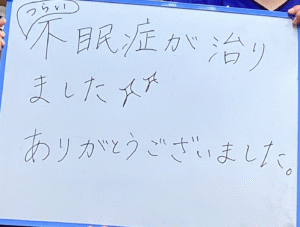 つらい
不眠症が治り
ました✨
ありがとうございました。